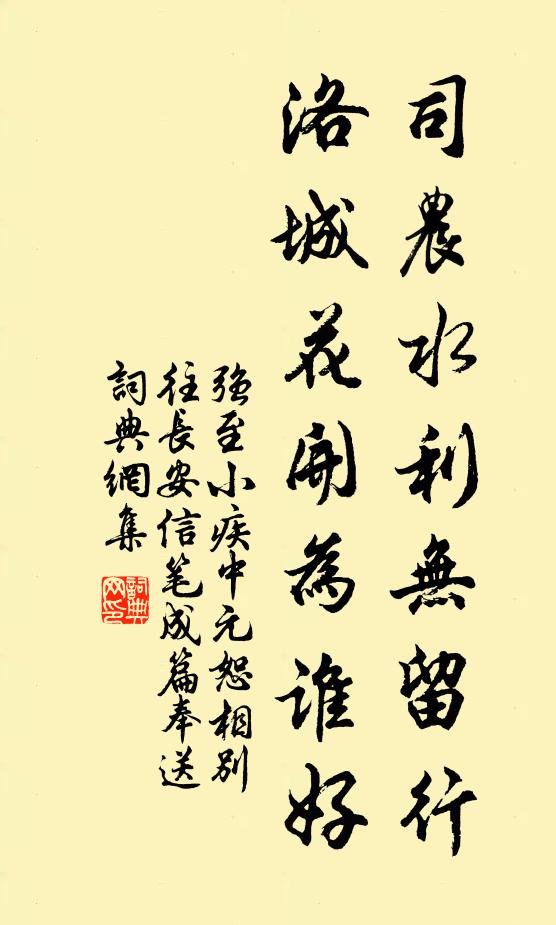 司農水利無留行
洛城花開為誰好
强至小疾中元恕相別
往長安信笔成篇奉送
詞典網集
詞典
网印